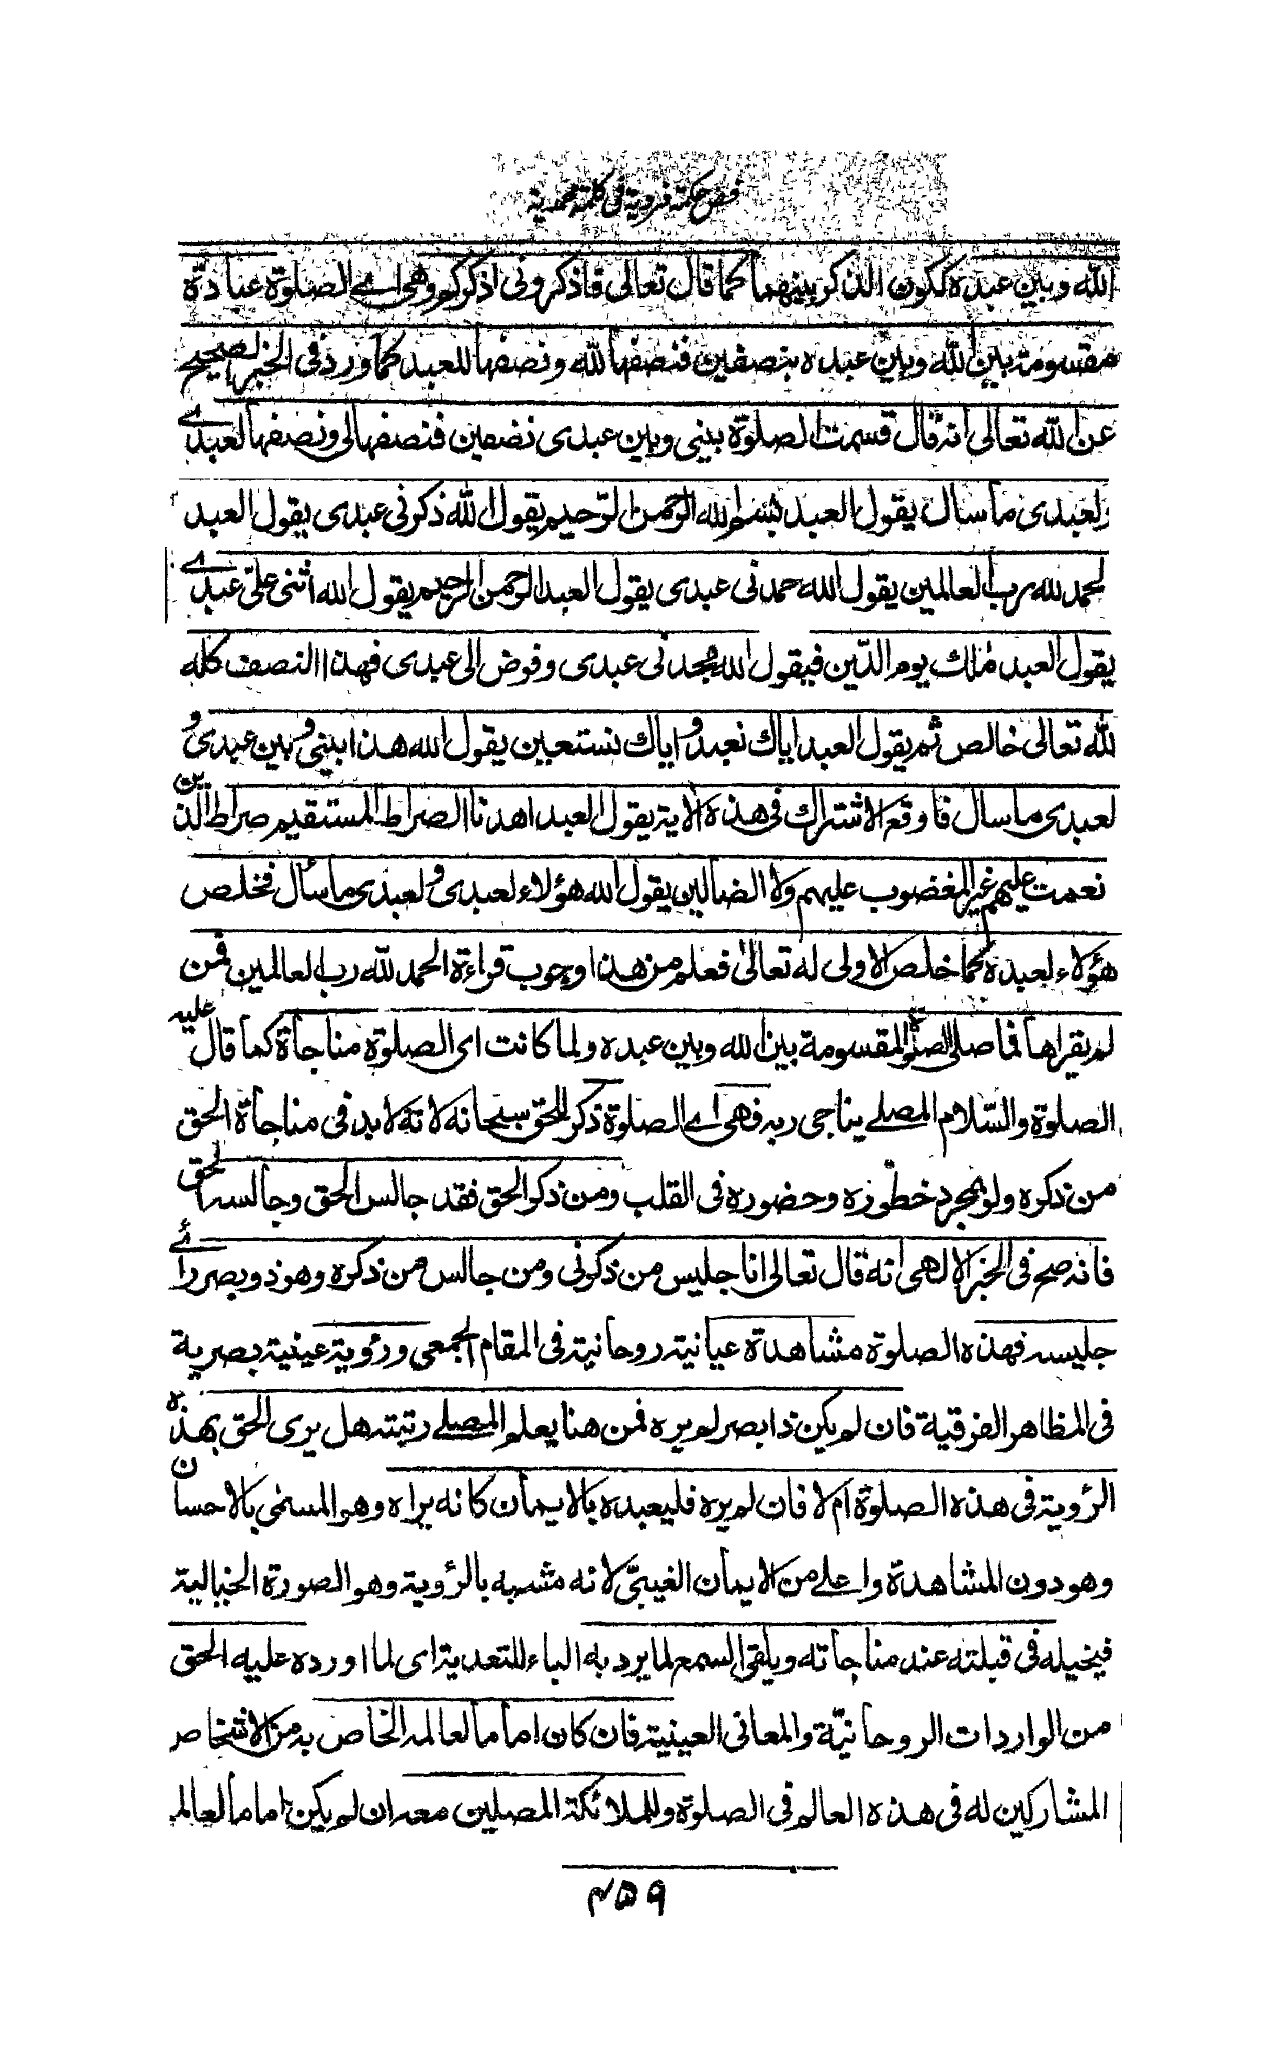 فص حكمة فردية في كلمة محمدية
الله وبين عبده ككون الذكر بينهما كما قال تعالى فاذكروني اذكركم وهى اى الصلوة عبادة
مقسومة بين الله وبين عبده بنصفين فنصفها لله ونصفها للعبد كما ورد فى الخبر الصحيح
عن الله تعالى انه قال قسمت الصلوة بينى وبين عبدى نصفين فنصفها لى ونصفها لعبدى
ولعبدى ما سال يقول العبد بسم الله الرحمن الرحيم يقول الله ذكرنى عبدى يقول العبد
الحمد لله رب العالمين يقول الله حمدنى عبدى يقول العبد الرحمن الرحيم يقول الله اثنى على عبدى
يقول العبد ملك يوم الدين فيقول الله مجدنى عبدى وفوض الى عبدى فهذا النصف كله
لله تعالى خالص ثم يقول العبد اياك نعبد واياك نستعين يقول الله هذا بينى وبين عبدى و
لعبدى ما سال فاوقع الاشتراك فى هذه الاية يقول العبد اهدنا الصراط المستقيم صراط الذين
نعمت عليهم غير المغضوب عليهم ولا الضالين يقول الله هؤلاء لعبدى ولعبدى ما سأل فخلص
هؤلاء لعبده كما خلص الاولى له تعالى فعلم من هذا وجوب قراءة الحمد لله رب العالمين فمن
لم يقراها فما صلى الصلوة المقسومة بين الله وبين عبده ولما كانت اى الصلوة مناجاة كما قال عليه
الصلوة والسلام المصلى يناجى ربه فهى اى الصلوة ذكر للحق سبحانه لانه لا بد فى مناجاة الحق
من ذكره ولو بمجرد خطوره وحضوره فى القلب ومن ذكر الحق فقد جالس الحق وجالسه الحق
فانه صح فى الخبر الالهى انه قال تعالى انا جليس من ذكرنى ومن جالس من ذكره وهو ذو بصر رائ
جليسه فهذه الصلوة مشاهدة عيانية روحانية فى المقام الجمعى ورؤية عينية بصرية
فى المظاهر الفرقية فان لم يكن ذا بصر لم يره فمن هنا يعلم المصلى رتبته هل يرى الحق بهذه
الرؤية فى هذه الصلوة ام لا فان لم يره فليعبده بالايمان كانه يراه وهو المسمى بالاحسان
وهو دون المشاهدة واعلى من الايمان الغيبى لانه مشبه بالرؤية وهو الصورة الخيالية
فيخيله فى قبلته عند مناجاته ويلقى السمع لما يرد به الباء للتعدية اى لما اورده عليه الحق
من الواردات الروحانية والمعانى العينية فان كان اماما لعالمه الخاص به من الاشخاص
المشاركين له فى هذه العالم فى الصلوة وللملائكة المصلين معه ان لم يكن اماما لعالم
۴۵۹